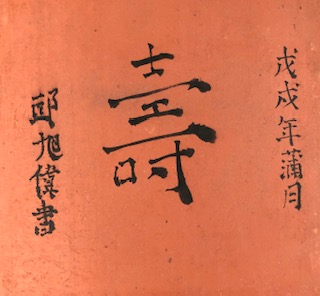 戊戌年蒲月
壽
邱旭偉書